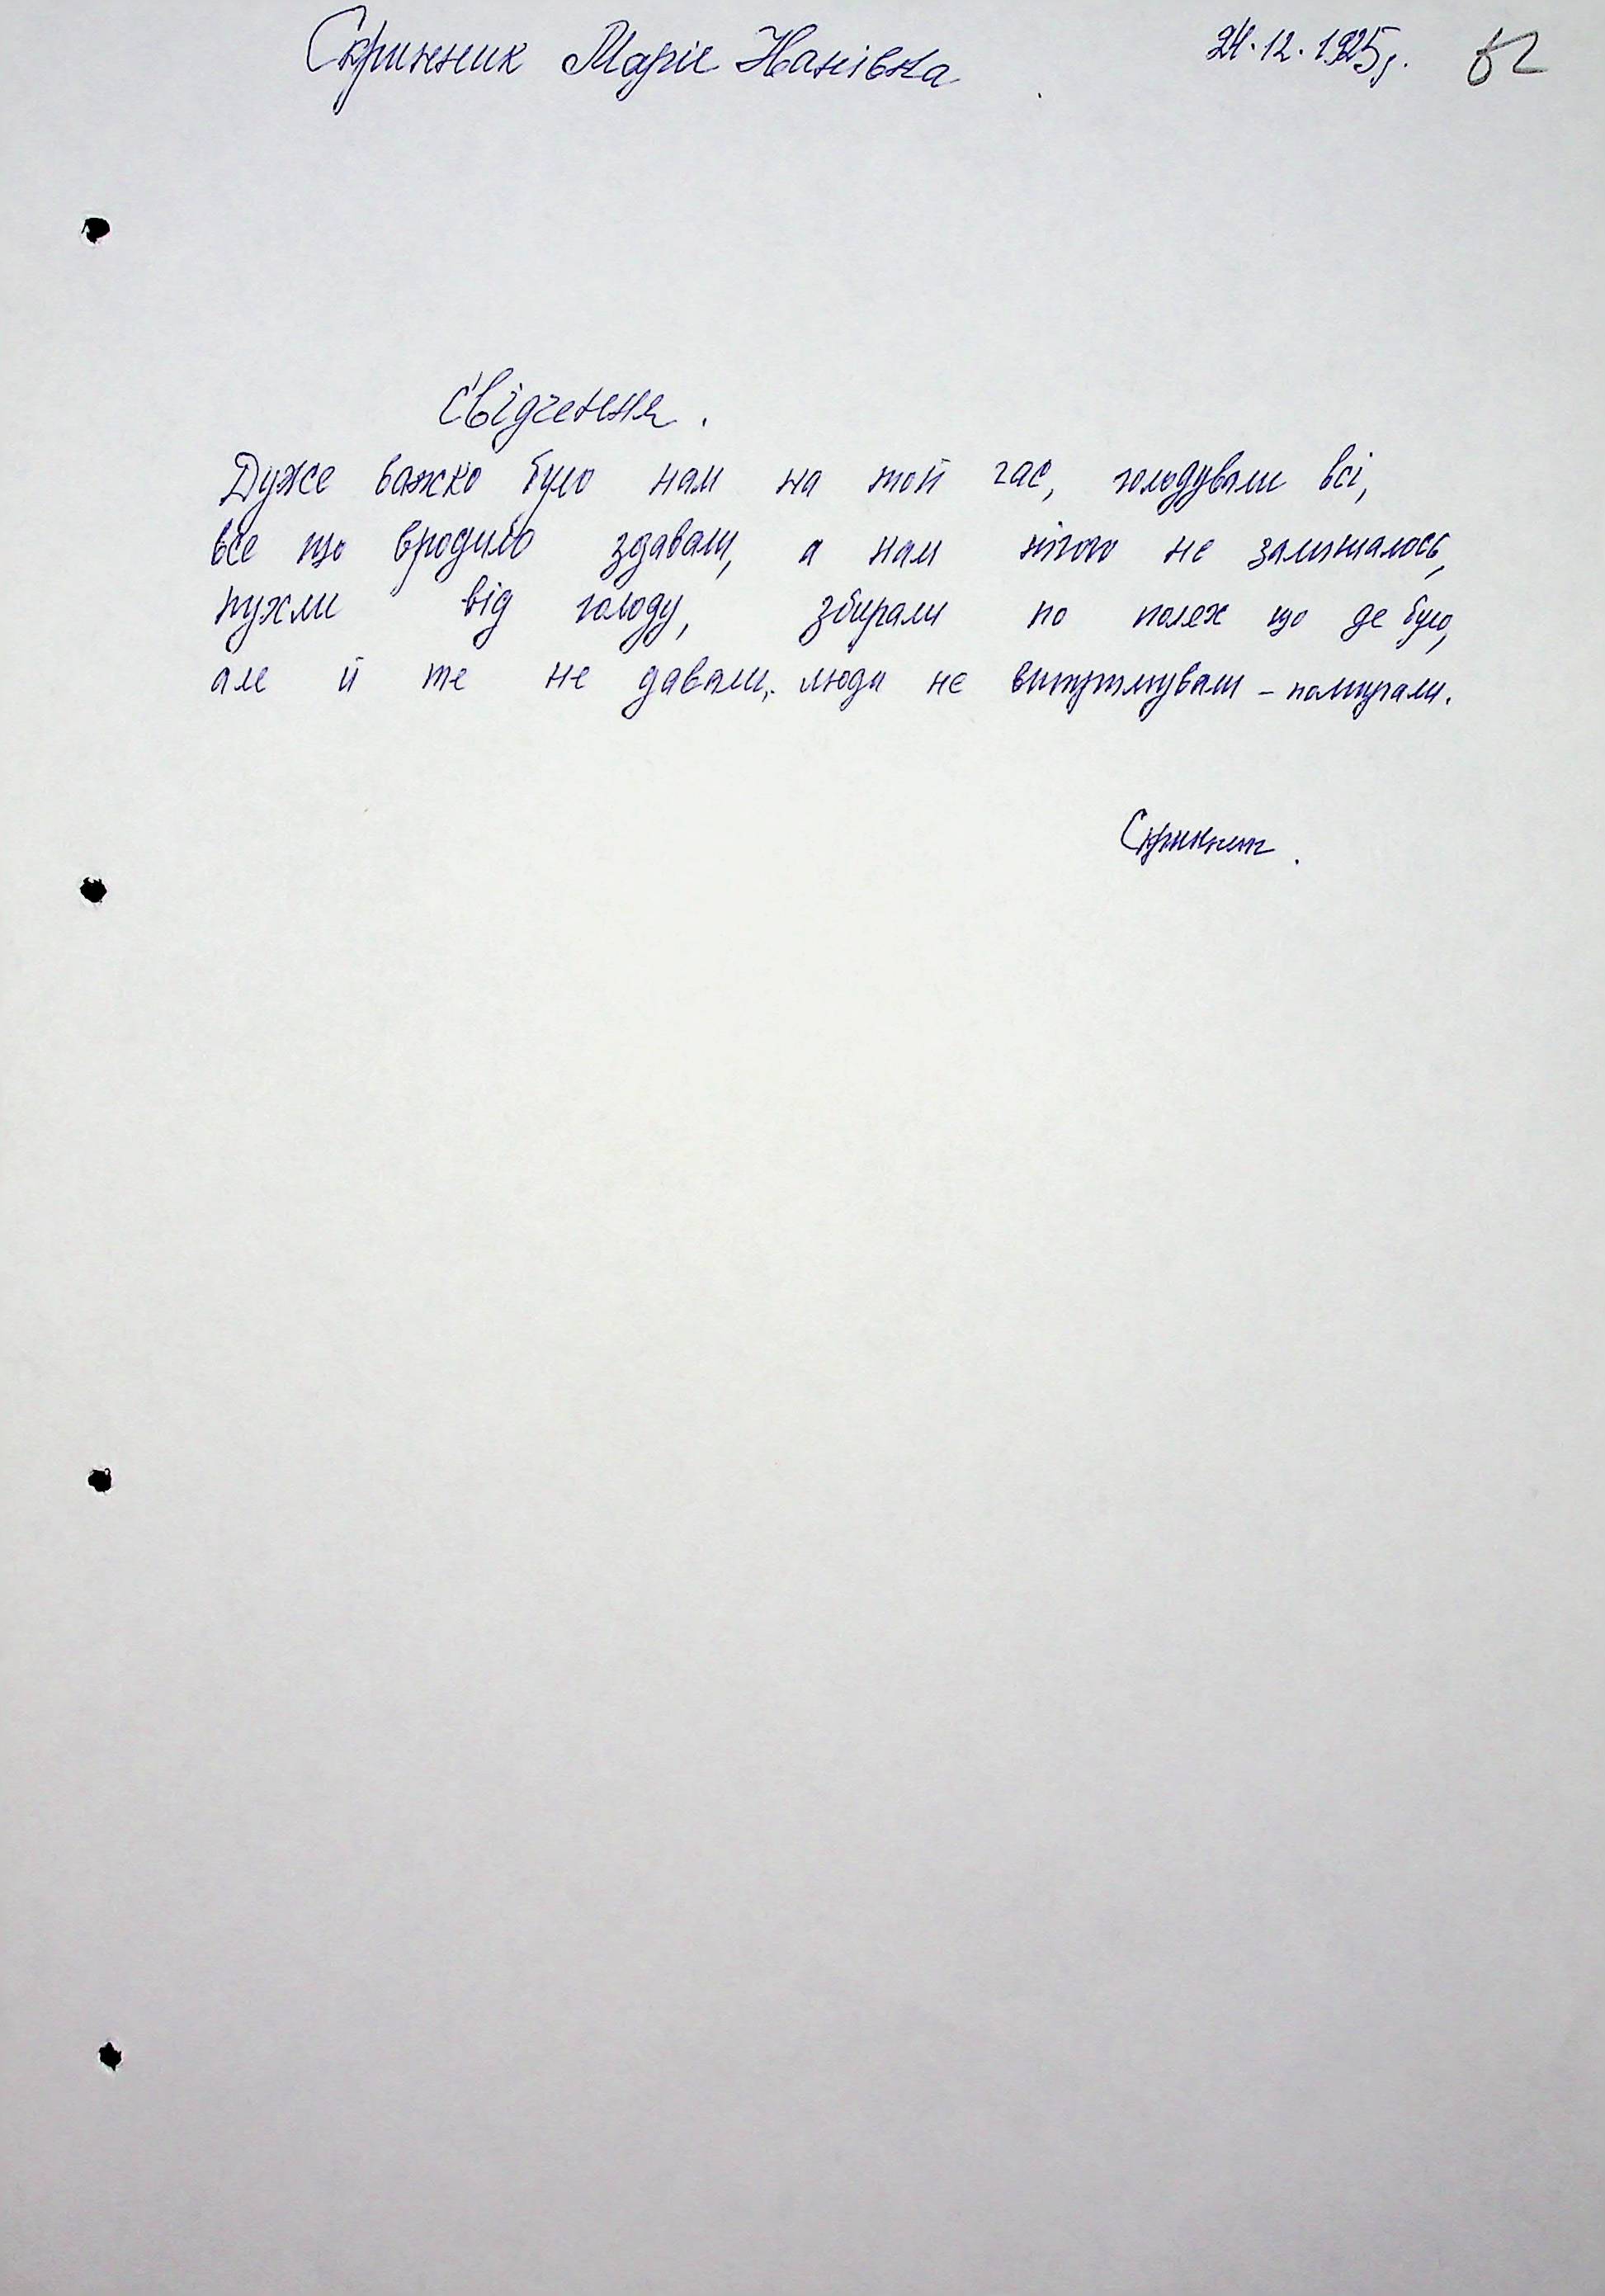 Скринник Марія Іванівна 24.12.1925р. 52
Свідчення.
Дуже важко було нам на той час, голодували всі,
все що вродило здавали, а нам нічого не залишалось,
пухли від голоду, збирали по полях що де було,
але й те не давали, люди не витримували - помирали.
Скринник.